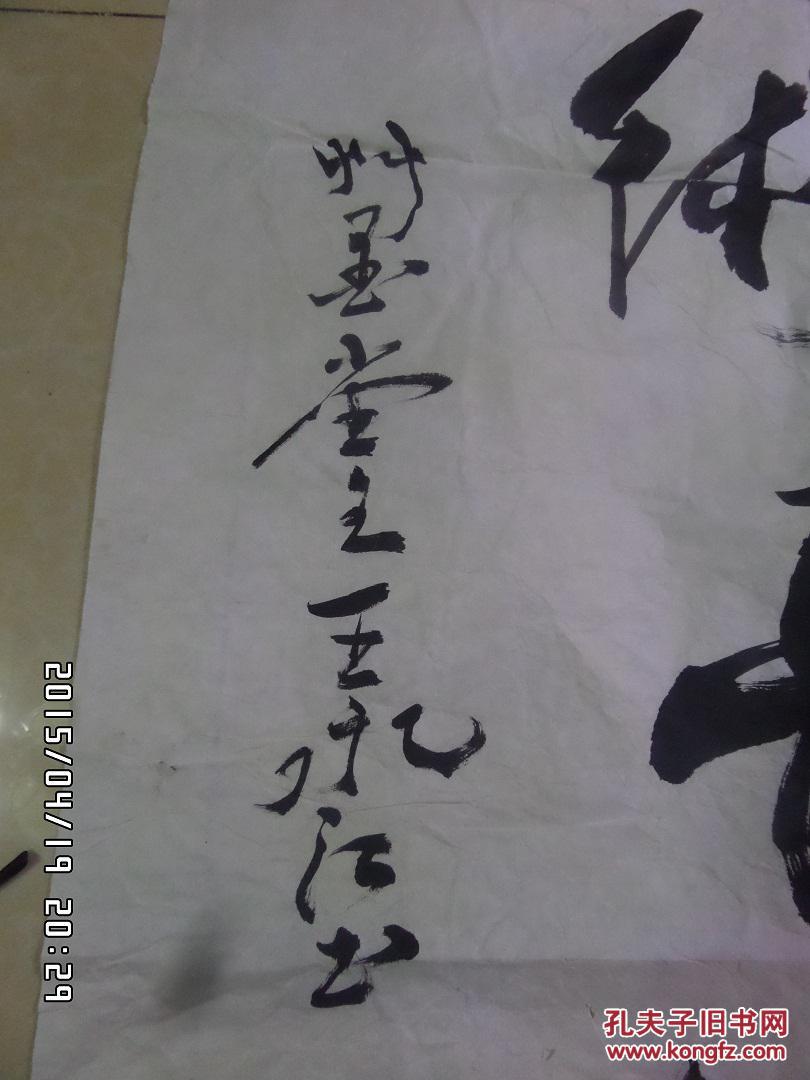 艸墨堂主王江书
2015/04/19 20:29
孔夫子旧书网
www.kongfz.com